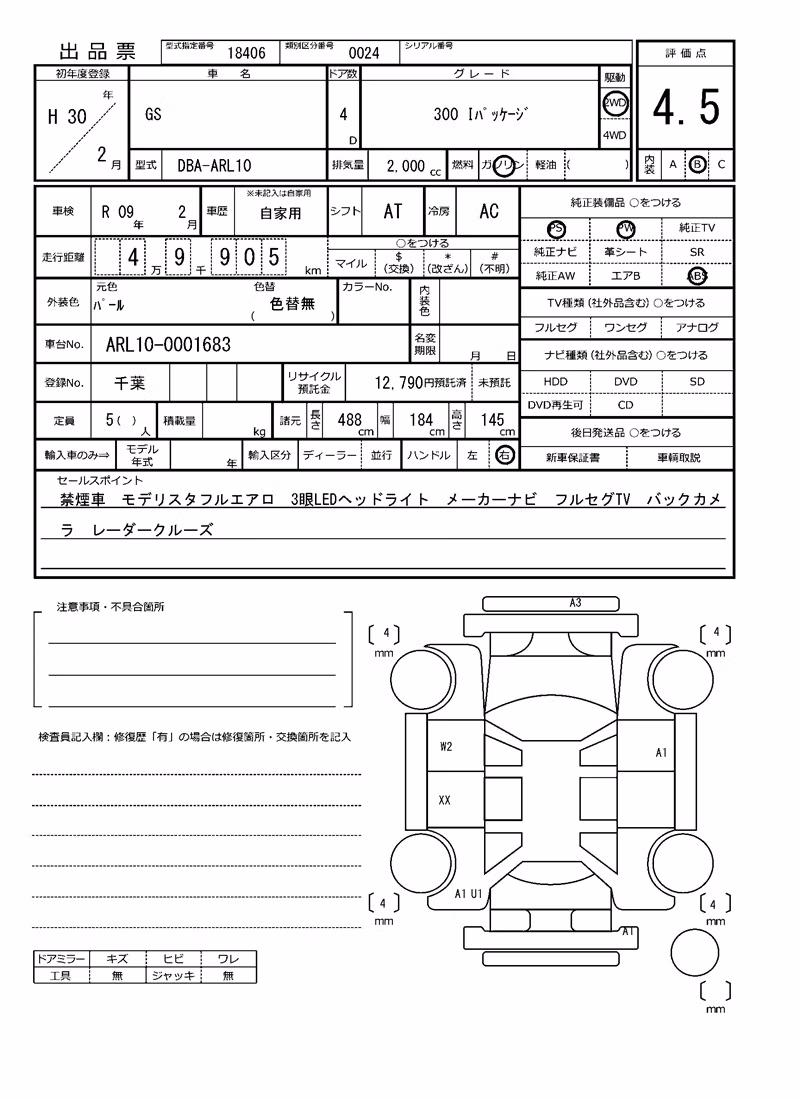 出品票 型式指定番号 18406 類別区分番号 0024 シリアル番号
評価点
4.5
内装 A B C
初年度登録 車名 ドア数 グレード 駆動
H 30 年 2 月
GS 4 D 300 Iパッケージ 2WD
4WD
型式 DBA-ARL10 排気量 2,000 cc 燃料 ガソリン 軽油 ( )
車検 R 09 年 2 月 車歴 ※未記入は自家用 自家用 シフト AT 冷房 AC
走行距離 4 万 9 千 9 0 5 km
○をつける
マイル $ (交換) * (改ざん) # (不明)
外装色 元色 パール 色替 ( 色替無 ) カラーNo. 内装色
車台No. ARL10-0001683 名変期限 月 日
登録No. 千葉 リサイクル預託金 12,790円預託済 未預託
定員 5( ) 人 積載量 kg 諸元 長さ 488 cm 幅 184 cm 高さ 145 cm
輸入車のみ⇒ モデル年式 年 輸入区分 ディーラー 並行 ハンドル 左 右
純正装備品 ○をつける
PS PW 純正TV
純正ナビ 革シート SR
純正AW エアB ABS
TV種類(社外品含む) ○をつける
フルセグ ワンセグ アナログ
ナビ種類(社外品含む) ○をつける
HDD DVD SD
DVD再生可 CD
後日発送品 ○をつける
新車保証書 車輌取説
セールスポイント
禁煙車 モデリスタフルエアロ 3眼LEDヘッドライト メーカーナビ フルセグTV バックカメ
ラ レーダークルーズ
注意事項・不具合箇所
検査員記入欄:修復歴「有」の場合は修復箇所・交換箇所を記入
ドアミラー キズ ヒビ ワレ
工具 無 ジャッキ 無
A3
4 mm
4 mm
W2
A1
XX
A1 U1
4 mm
4 mm
A1
mm